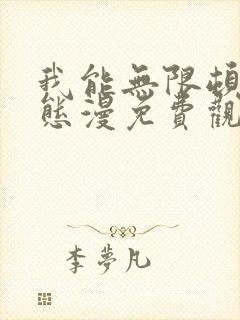 我能無限頓
態漫免費觀
李夢凡